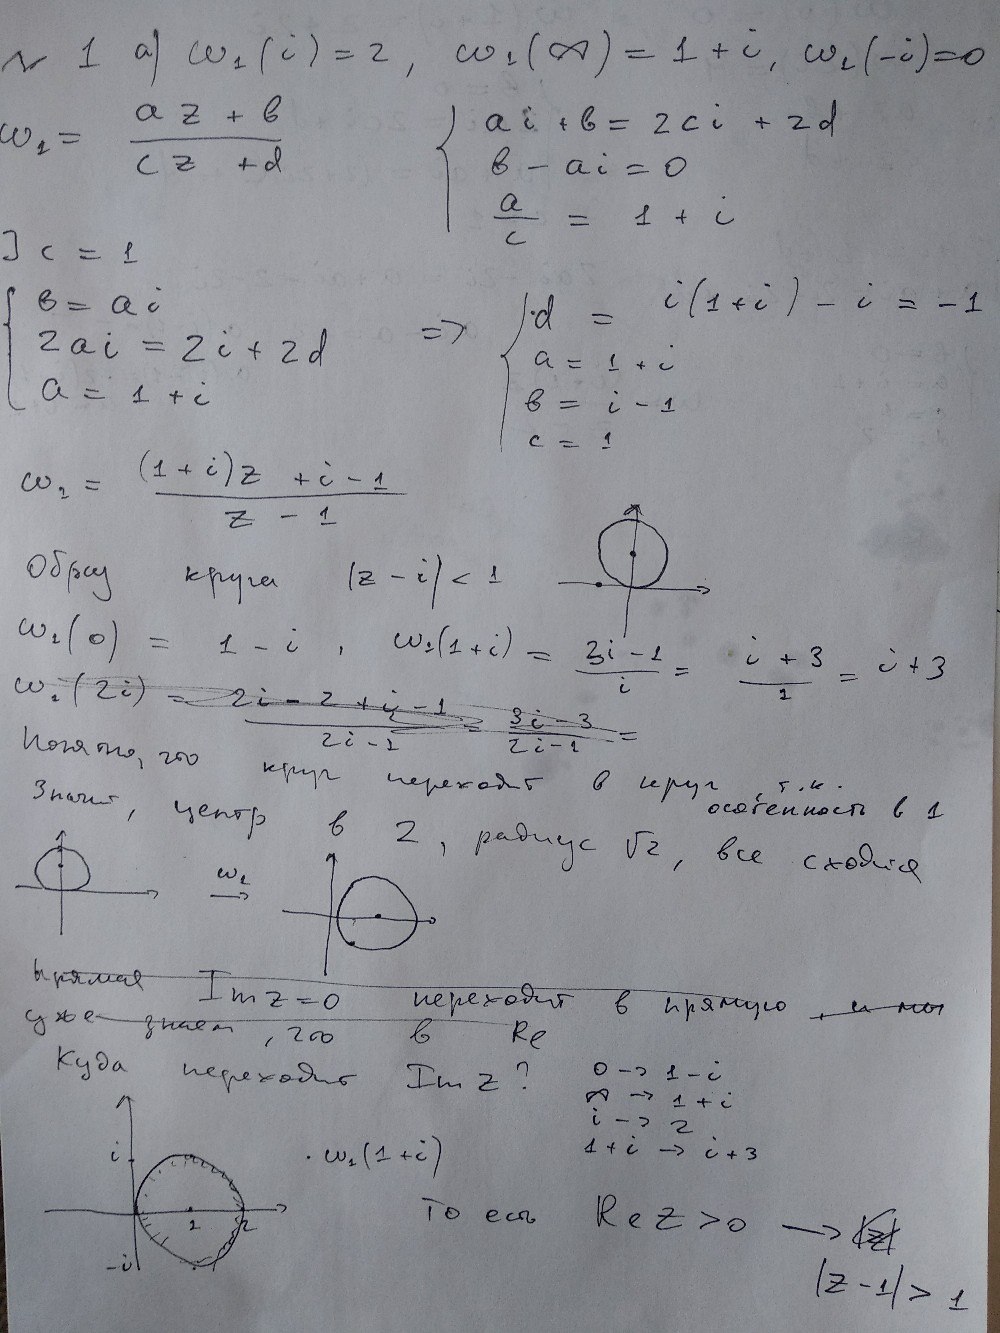 № 1 а) ω₁(i) = 2, ω₁(∞) = 1 + i, ω₁(-i) = 0
ω₁ = (az + в)/(cz + d)
{ ai + в = 2ci + 2d
в - ai = 0
a/c = 1 + i
] c = 1
{ в = ai
2ai = 2i + 2d
a = 1 + i
=> { d = i(1+i) - i = -1
a = 1 + i
в = i - 1
c = 1
ω₁ = ((1+i)z + i - 1)/(z - 1)
Образ круга |z - i| < 1
ω₁(0) = 1 - i, ω₁(1+i) = (3i - 1)/i = (i + 3)/1 = i + 3
ω₁(2i) = (2i - 2 + i - 1)/(2i - 1) = (3i - 3)/(2i - 1) =
Понятно, что круг переходит в круг, т.к. особенность в 1
Значит, центр в 2, радиус √2, все сходится
ω₁
прямая Im z = 0 переходит в прямую, и мы
уже знаем, что в Re
Куда переходит Im z?
0 -> 1 - i
∞ -> 1 + i
i -> 2
1 + i -> i + 3
i
· ω₁(1+i)
1 2
-i
То есть Re z > 0 -> |z|
|z - 1| > 1